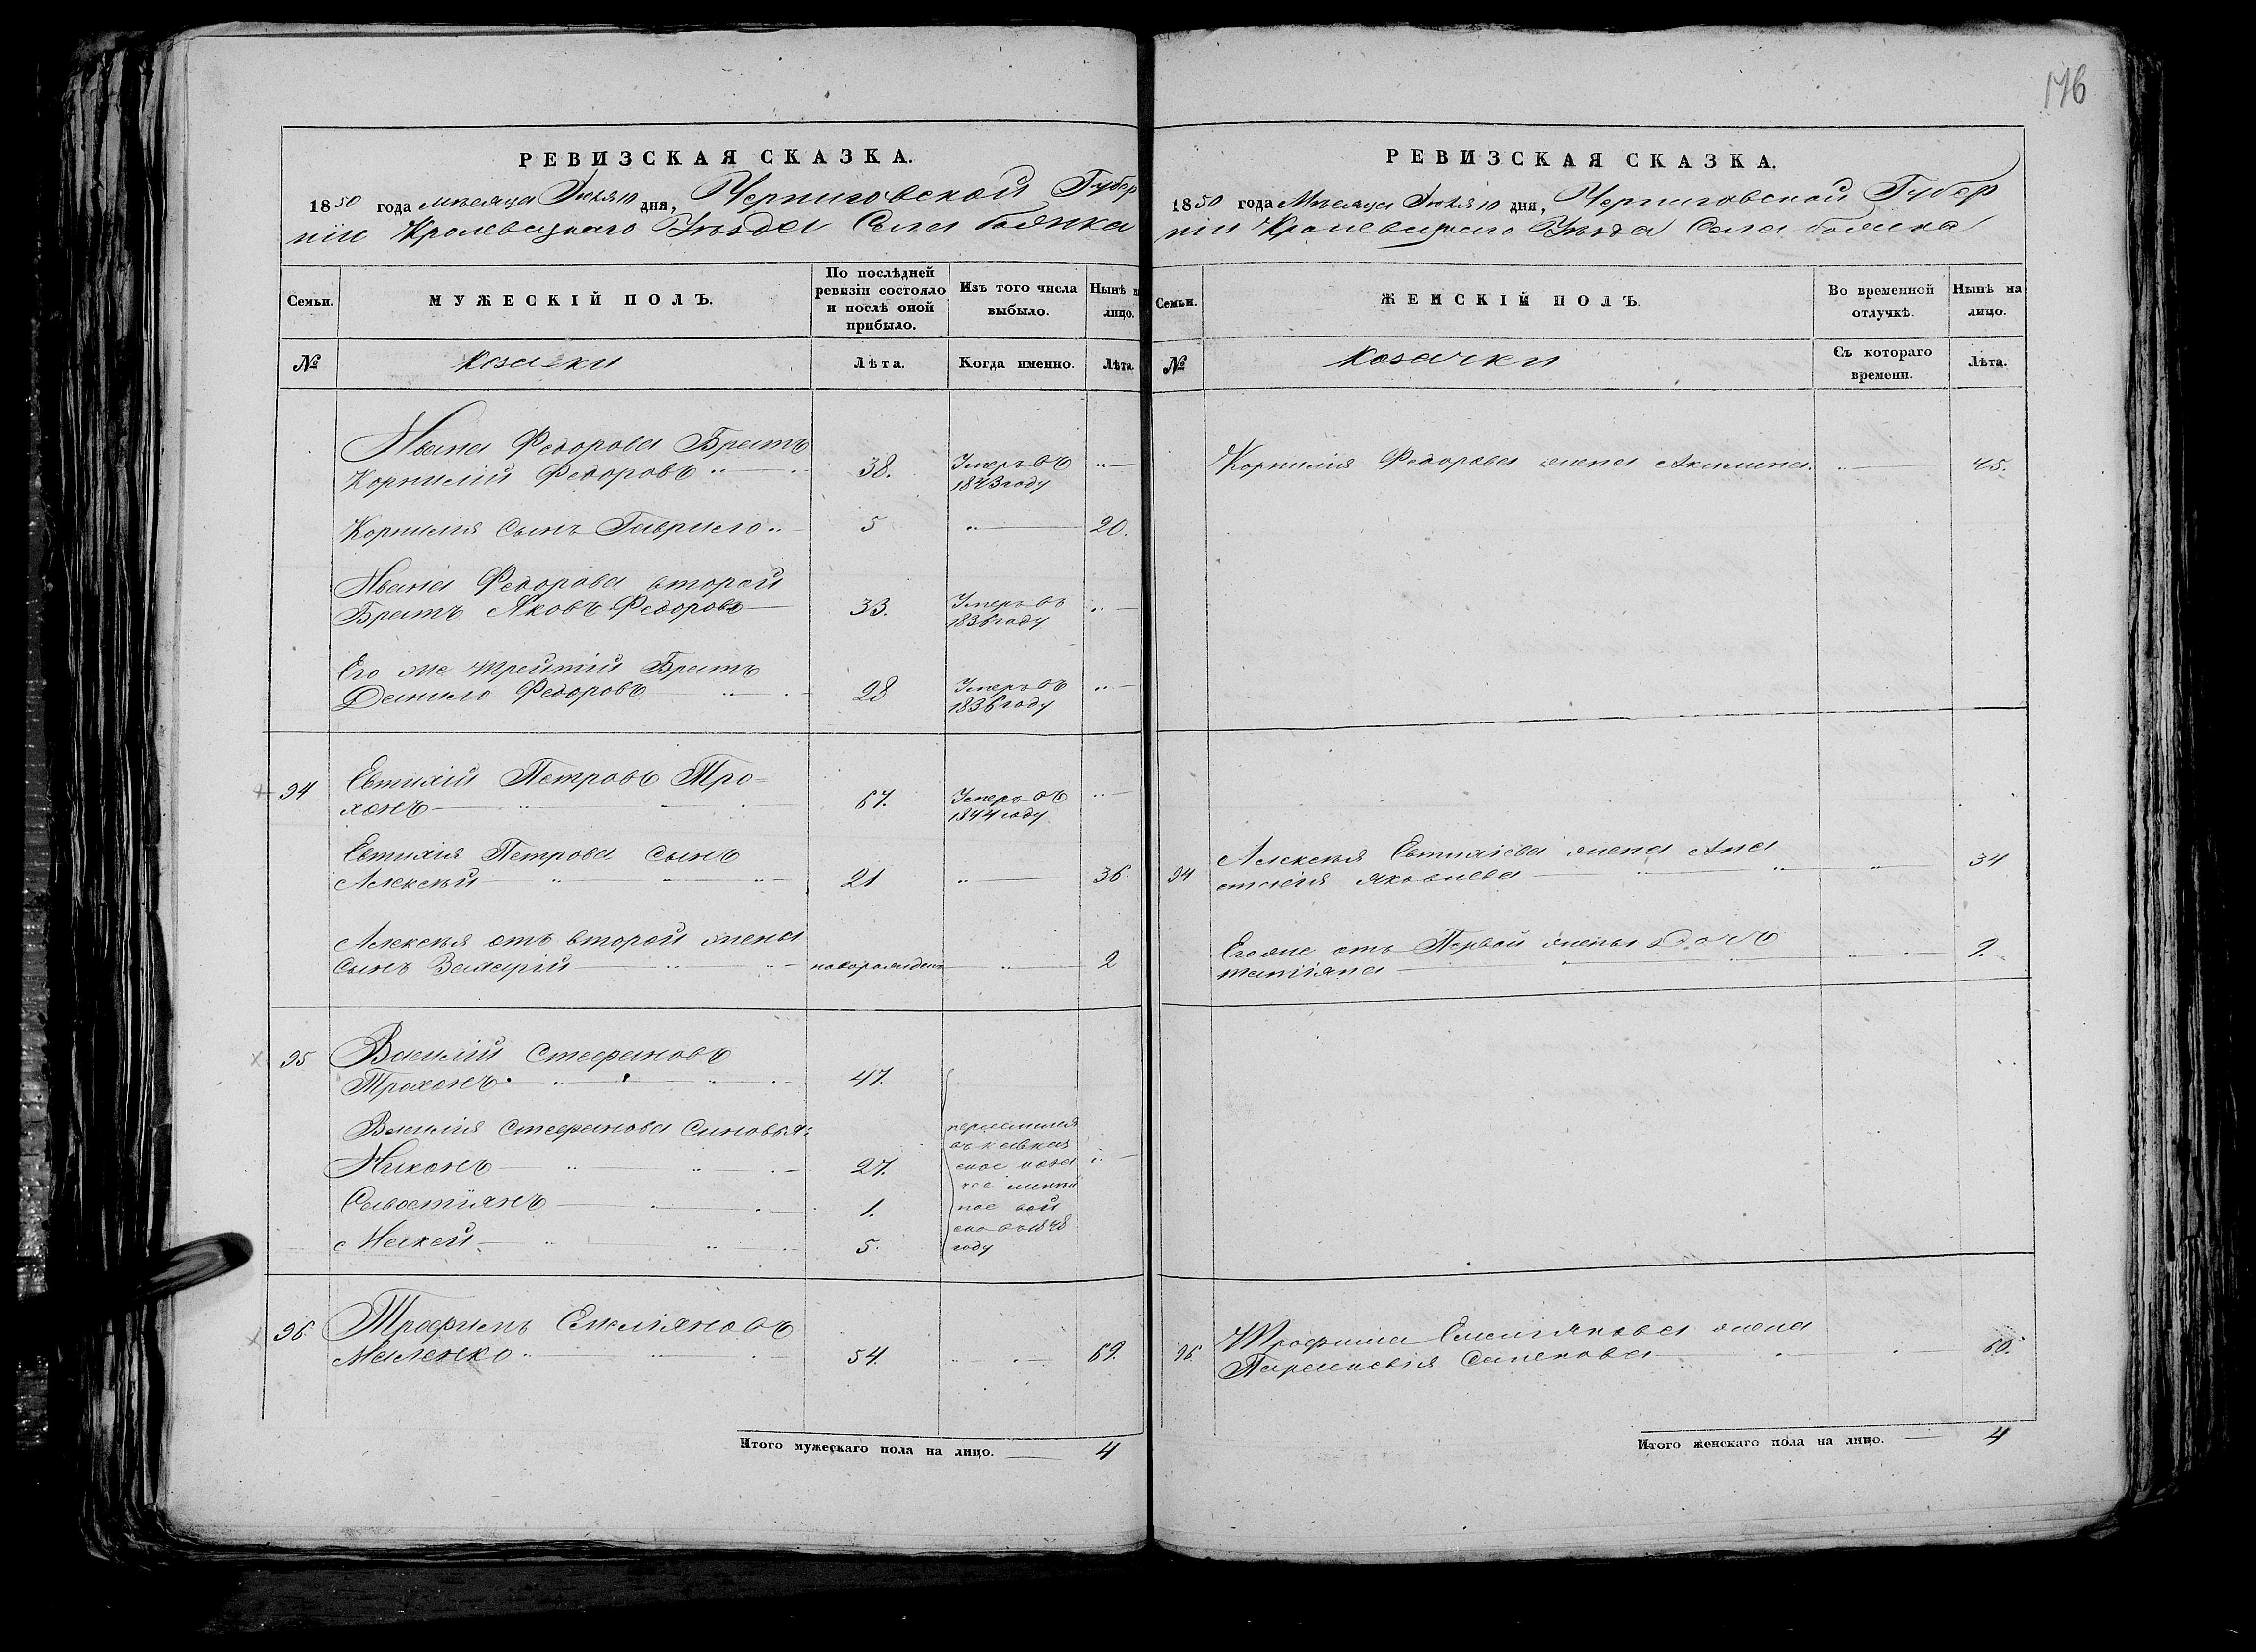 176
РЕВИЗСКАЯ СКАЗКА.
1850 года мѣсяца Июля 10 дня, Черниговской Губер
ніи Кролевецкаго Уѣзда Села
Семьи.
МУЖЕСКІЙ ПОЛЪ.
По послѣдней ревизіи состояло и послѣ оной прибыло.
Изъ того числа выбыло.
Нынѣ на лицо.
№
Козачки
Лѣта.
Когда именно.
Лѣта.
Ивана Федорова Братъ
Корнилій Федоровъ 38. Умеръ въ 1843 году
Корнилія Сынъ Гаврило 5 20.
Ивана Федорова второй
Братъ Яковъ Федоровъ 33. Умеръ въ 1836 году
Его же третій Братъ
Данило Федоровъ 28 Умеръ въ 1836 году
94 Евтихій Петровъ Тро-
хонъ 67. Умеръ въ 1844 году
Евтихія Петрова Сынъ
Алексѣй 21 36.
Алексѣя отъ второй жены
Сынъ Захарій новорожденъ 2
95 Василій Стефановъ
Трохонъ 47.
Василія Стефанова Синовья:
Никонъ 27.
Севастіянъ 1.
Макей 5.
въ
ское
ное вой
ско въ 1848
году
96. Трофимъ Емеліяновъ
Маленко 54. 69.
Итого мужескаго пола на лицо. 4
РЕВИЗСКАЯ СКАЗКА.
1850 года Мѣсяца Июля 10 дня, Черниговской Губер
ніи Кролевецкаго Уѣзда Села
Семьи.
ЖЕНСКІЙ ПОЛЪ.
Во временной отлучкѣ.
Нынѣ на лицо.
№
Козачки
Съ котораго времени.
Лѣта.
Корнилія Федорова жена Акилина. 45.
94 Алексѣя Евтихіева жена Ана
стасія Яковлева 34
Его же отъ Первой жены Дочь
татіяна 9.
96 Трофима Емеліянова жена
Параскевія Семенова 60.
Итого женскаго пола на лицо. 4